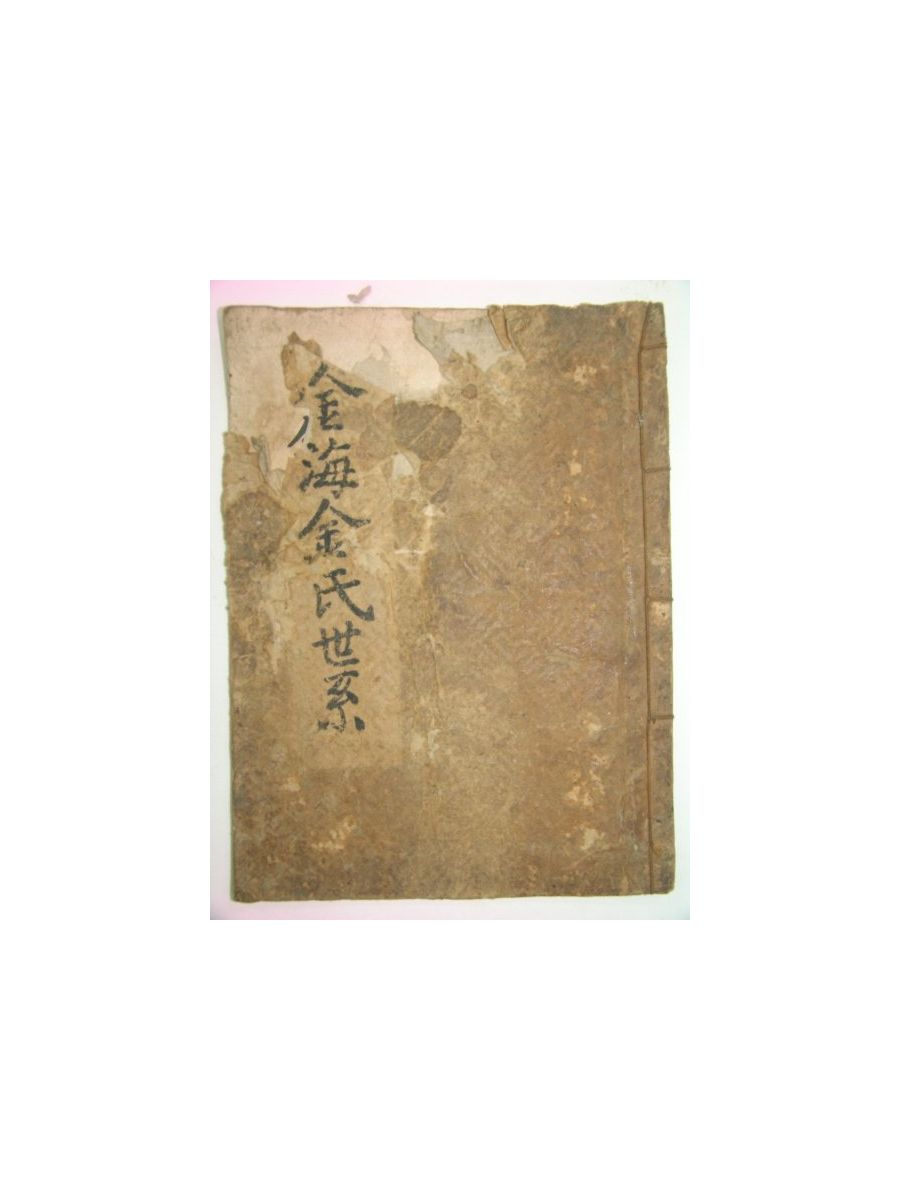 金海金氏世系